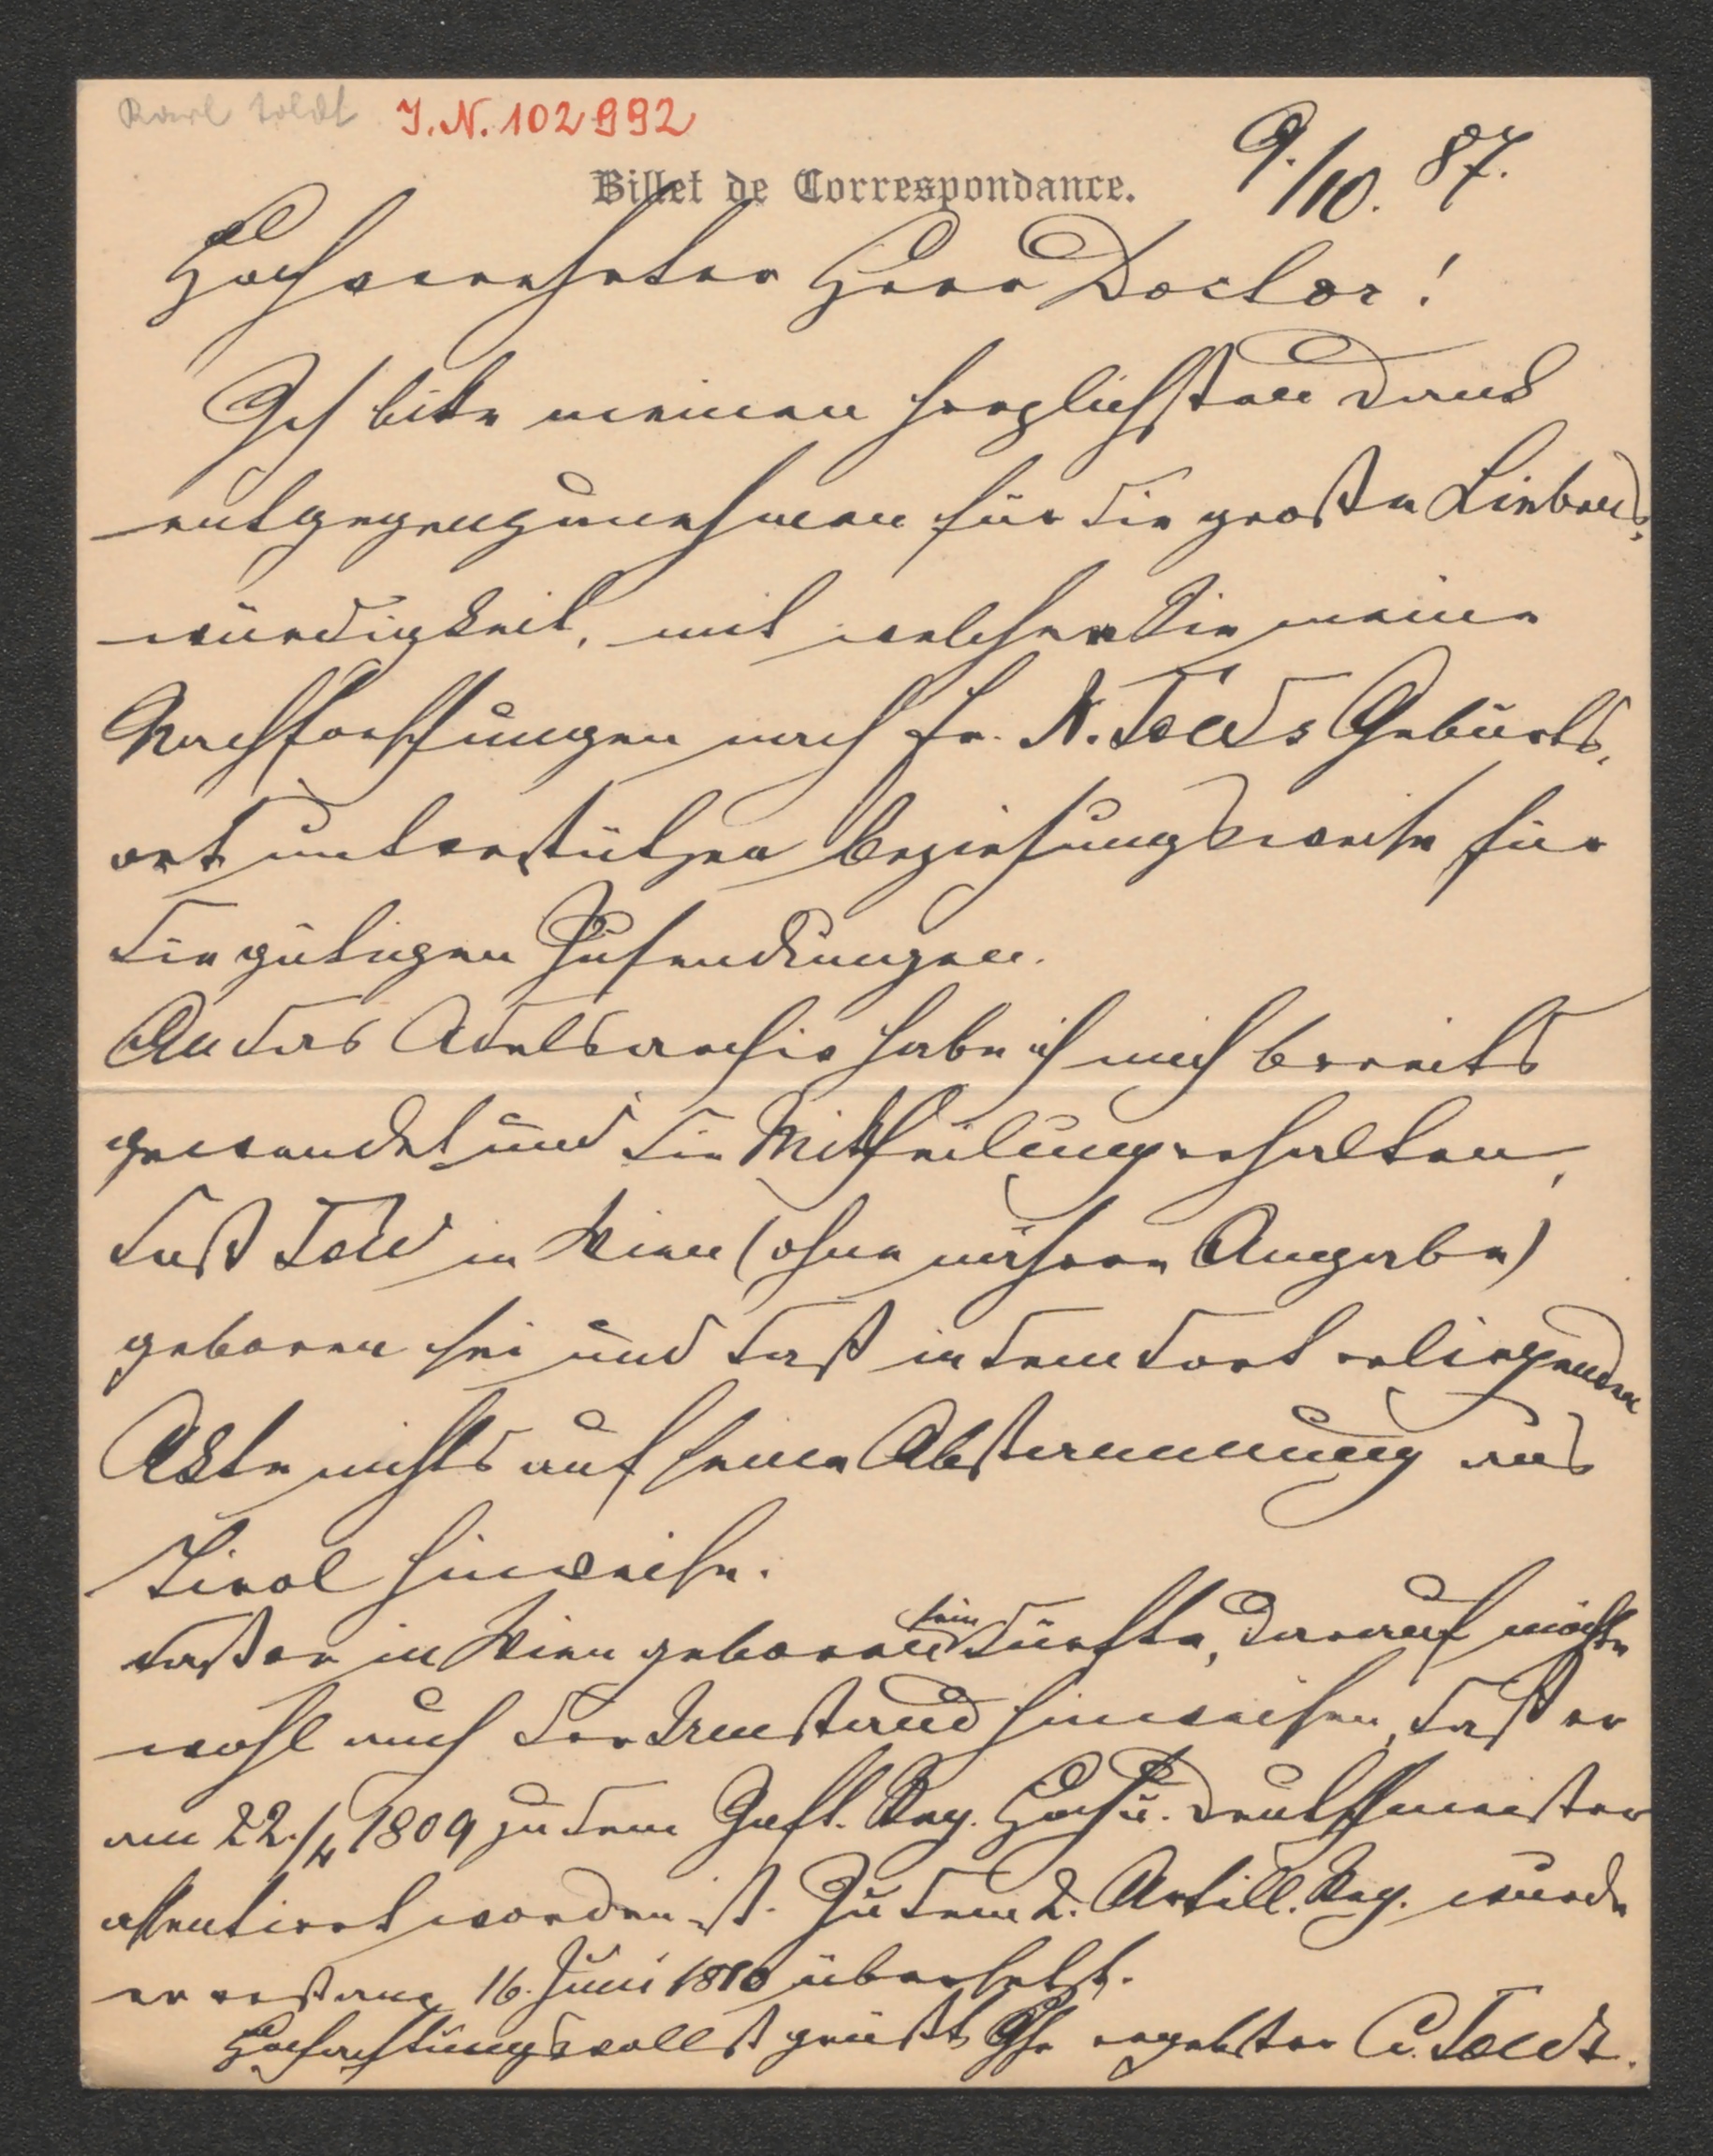 Karl Toldt
I.N. 102992
9./10. 87.
Billet de Correspondance.
Hochverehrter Herr Doctor!
Ich bitte meinen herzlichsten Dank
entgegenzunehmen für die große Liebens-
würdigkeit, mit welcher Sie meine
Nachforschungen nach Fr. N. Told's Geburts-
ort unterstützen beziehungsweise für
die gütigen Zusendungen.
An das Adelsarchiv habe ich mich bereits
gewendet und die Mittheilung erhalten,
daß Told in Wien (ohne nähere Angabe)
geboren sei und daß in dem dort erliegenden
Akte nichts auf seine Abstammung aus
Tirol hinweise.
Daß er in Wien geboren sein dürfte, darauf möchte
wohl auch der Umstand hinweisen, daß er
am 22./4 1809 zu dem Inft. Reg. Hoch u. Deutschmeister
assentirt worden ist. Zu dem 2. Artill. Reg. wurde
er erst am 16. Juni 1810 übersetzt.
Hochachtungsvollst grüßt Ihr ergebster C. Toldt.